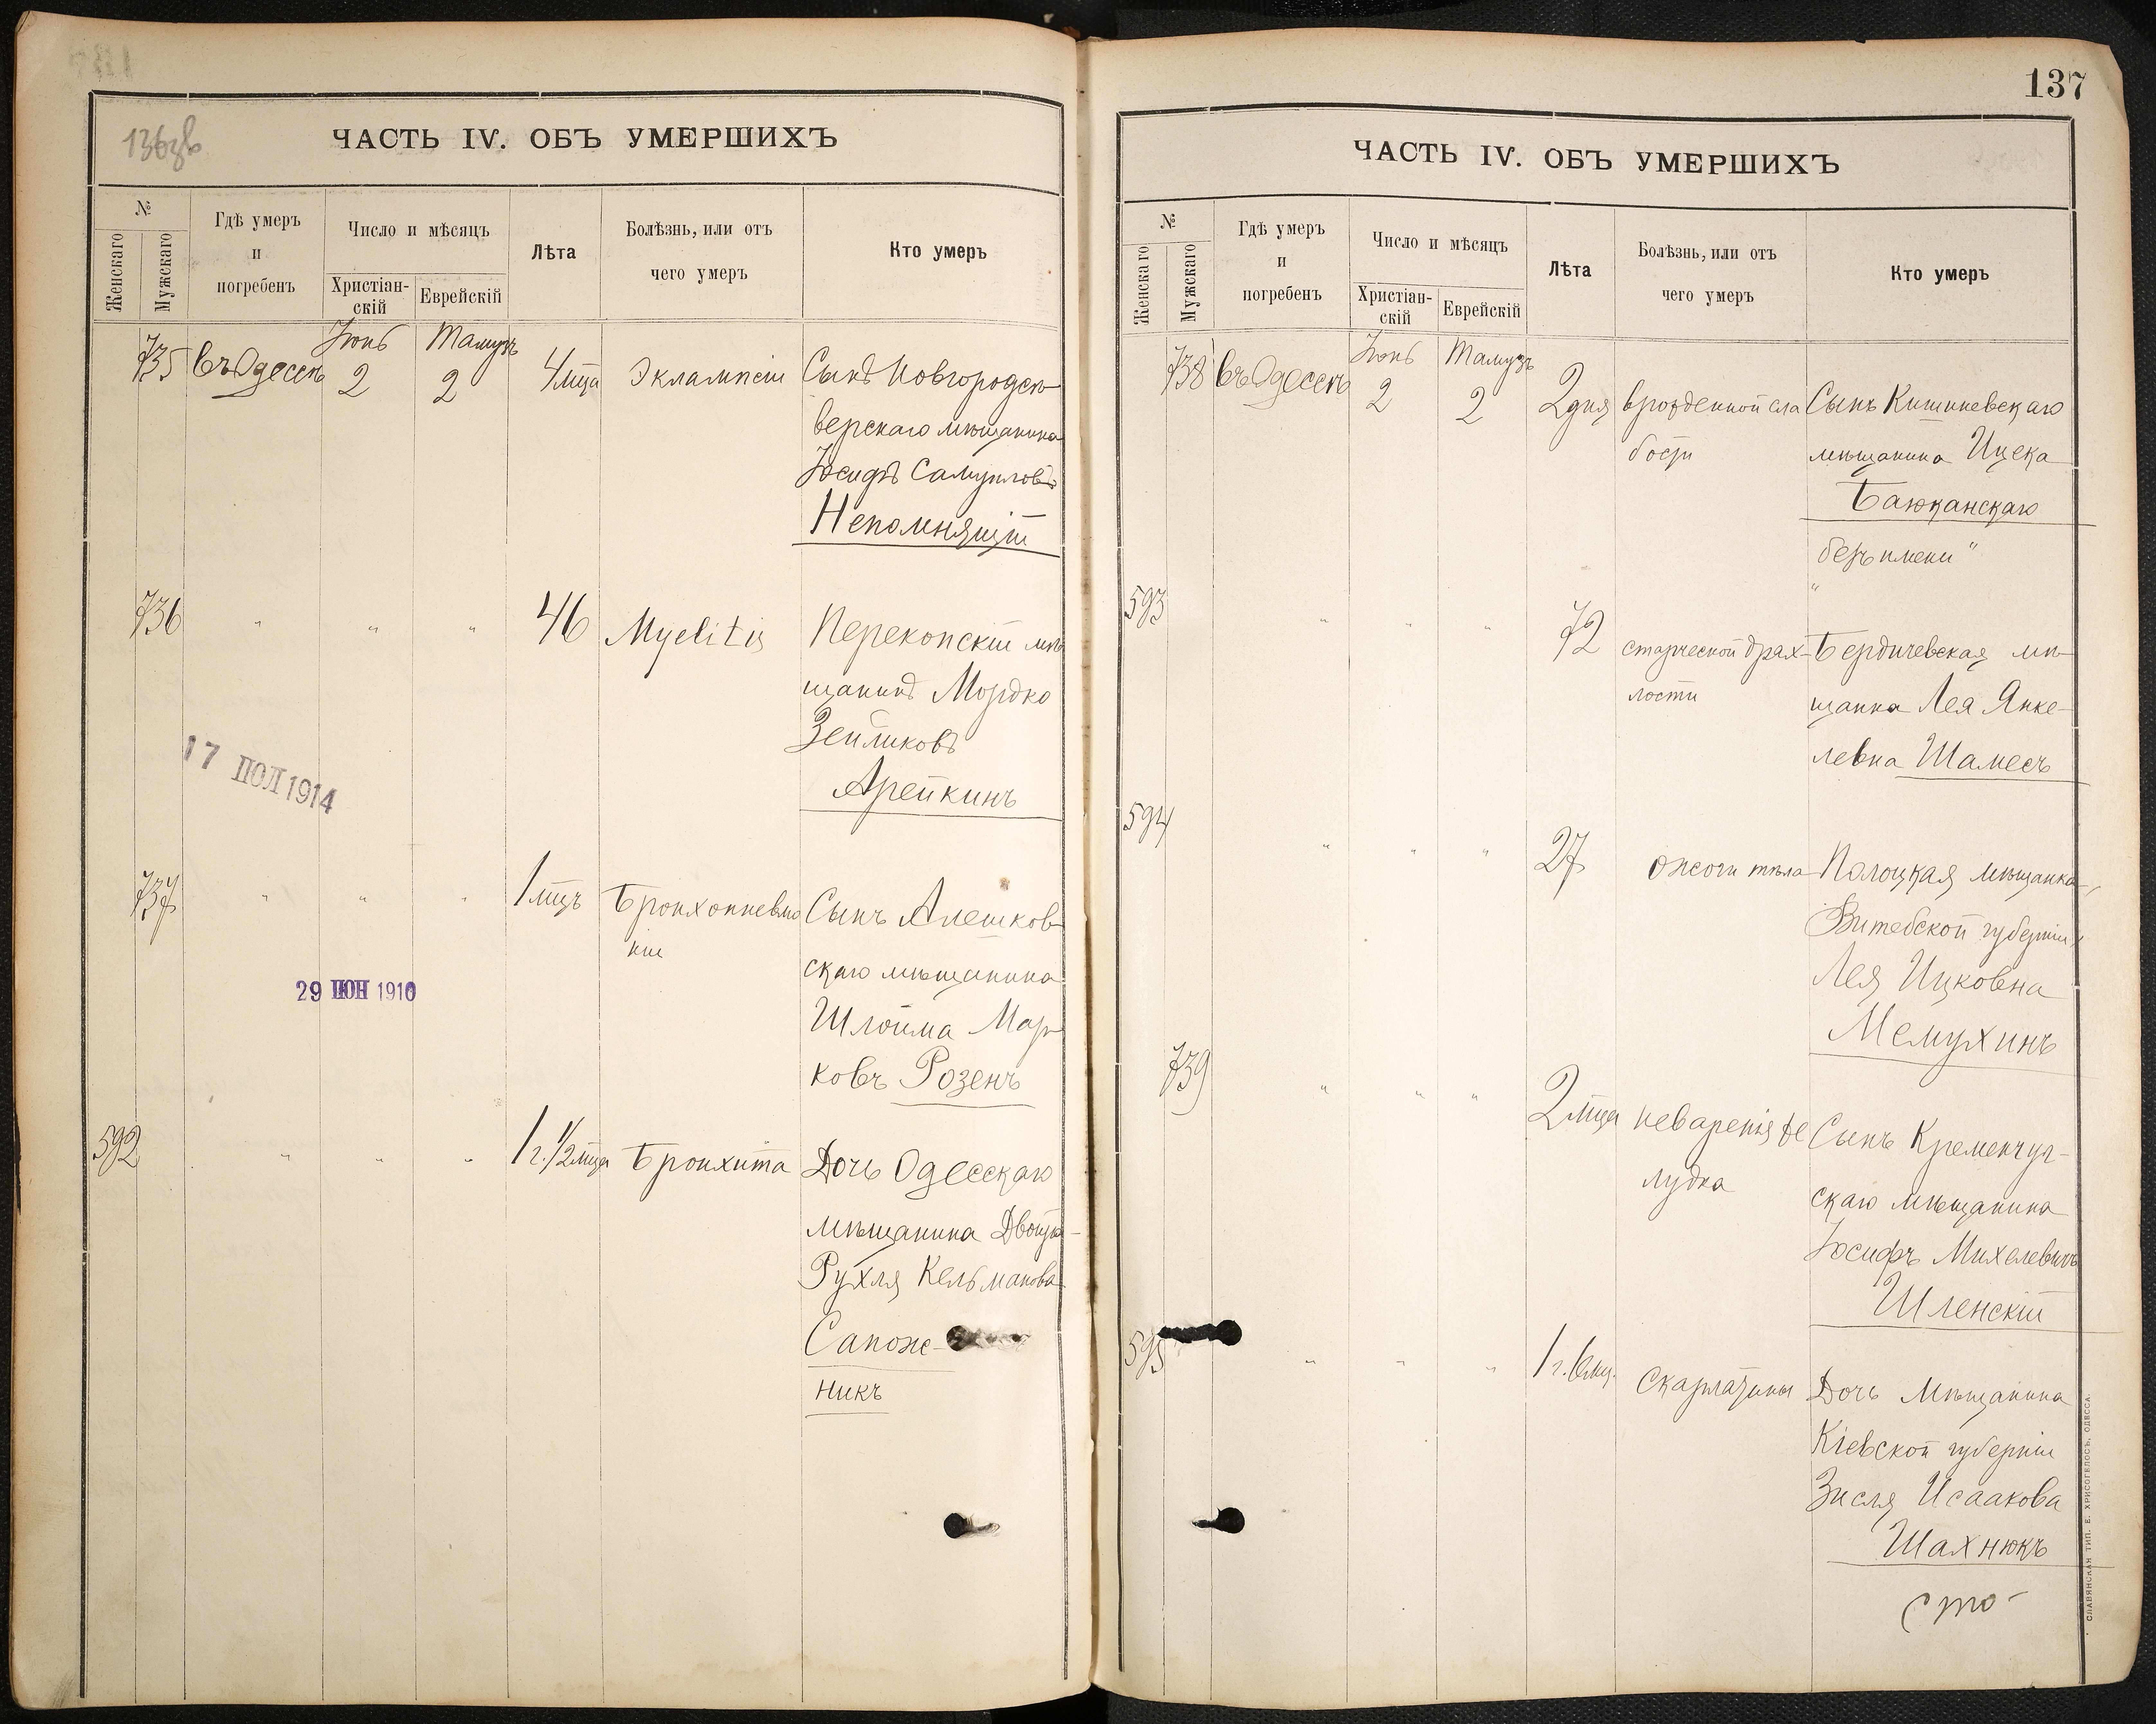 136зв
ЧАСТЬ IV. ОБЪ УМЕРШИХЪ
№
Женскаго
Мужскаго
Гдѣ умеръ
и
погребенъ
Число и мѣсяцъ
Христіан-
скій
Еврейскій
Лѣта
Болѣзнь, или отъ
чего умеръ
Кто умеръ
Іюнь Тамузъ
735 въ Одессѣ 2 2 4 мца Эклампсіи Сынъ Новгородсѣ-
верскаго мѣщанина
Іосифъ Самуиловъ
Непомнящій
736 " " " 46 Myelitis Перекопскій мѣ
щанинъ Мордко
Зейликовъ
Арейкинъ
17 ІЮЛ 1914
737 " " " 1 мцъ Бронхопневмо Сынъ Алешков-
ніи
скаго мѣщанина
29 ІЮН 1910
Шлойма Мар-
ковъ Розенъ
592 " " " 1 г. 1/2 мца Бронхита Дочь Одесскаго
мѣщанина Двойра-
Рухля Кельманова
Сапож-
никъ
137
ЧАСТЬ IV. ОБЪ УМЕРШИХЪ
№
Женскаго
Мужскаго
Гдѣ умеръ
и
погребенъ
Число и мѣсяцъ
Христіан-
скій
Еврейскій
Лѣта
Болѣзнь, или отъ
чего умеръ
Кто умеръ
Іюнь Тамузъ
738 въ Одессѣ 2 2 2 дня врожденной сла Сынъ Кишиневскаго
бости мѣщанина Ицека
Баюканскаго
безъ имени "
"
593 " " " 72 старческой драх- Бердичевская мѣ-
лости щанка Лея Янке-
левна Шамесъ
594 " " " 27 ожоги тѣла Полоцкая мѣщанка,
Витебской губерніи,
Лея Ицковна
Мемухинъ
739 " " " 2 мца неваренія же Сынъ Кременчуг-
лудка скаго мѣщанина
Іосифъ Михелевичъ
Шленскій
595 " " " 1 г. 6 мц. Скарлатины Дочь мѣщанина
Кіевской губерніи
Зисля Исаакова
Шахнюкъ
сто-
СЛАВЯНСКАЯ ТИП. Е. ХРИСОГЕЛОСЪ, ОДЕССА.